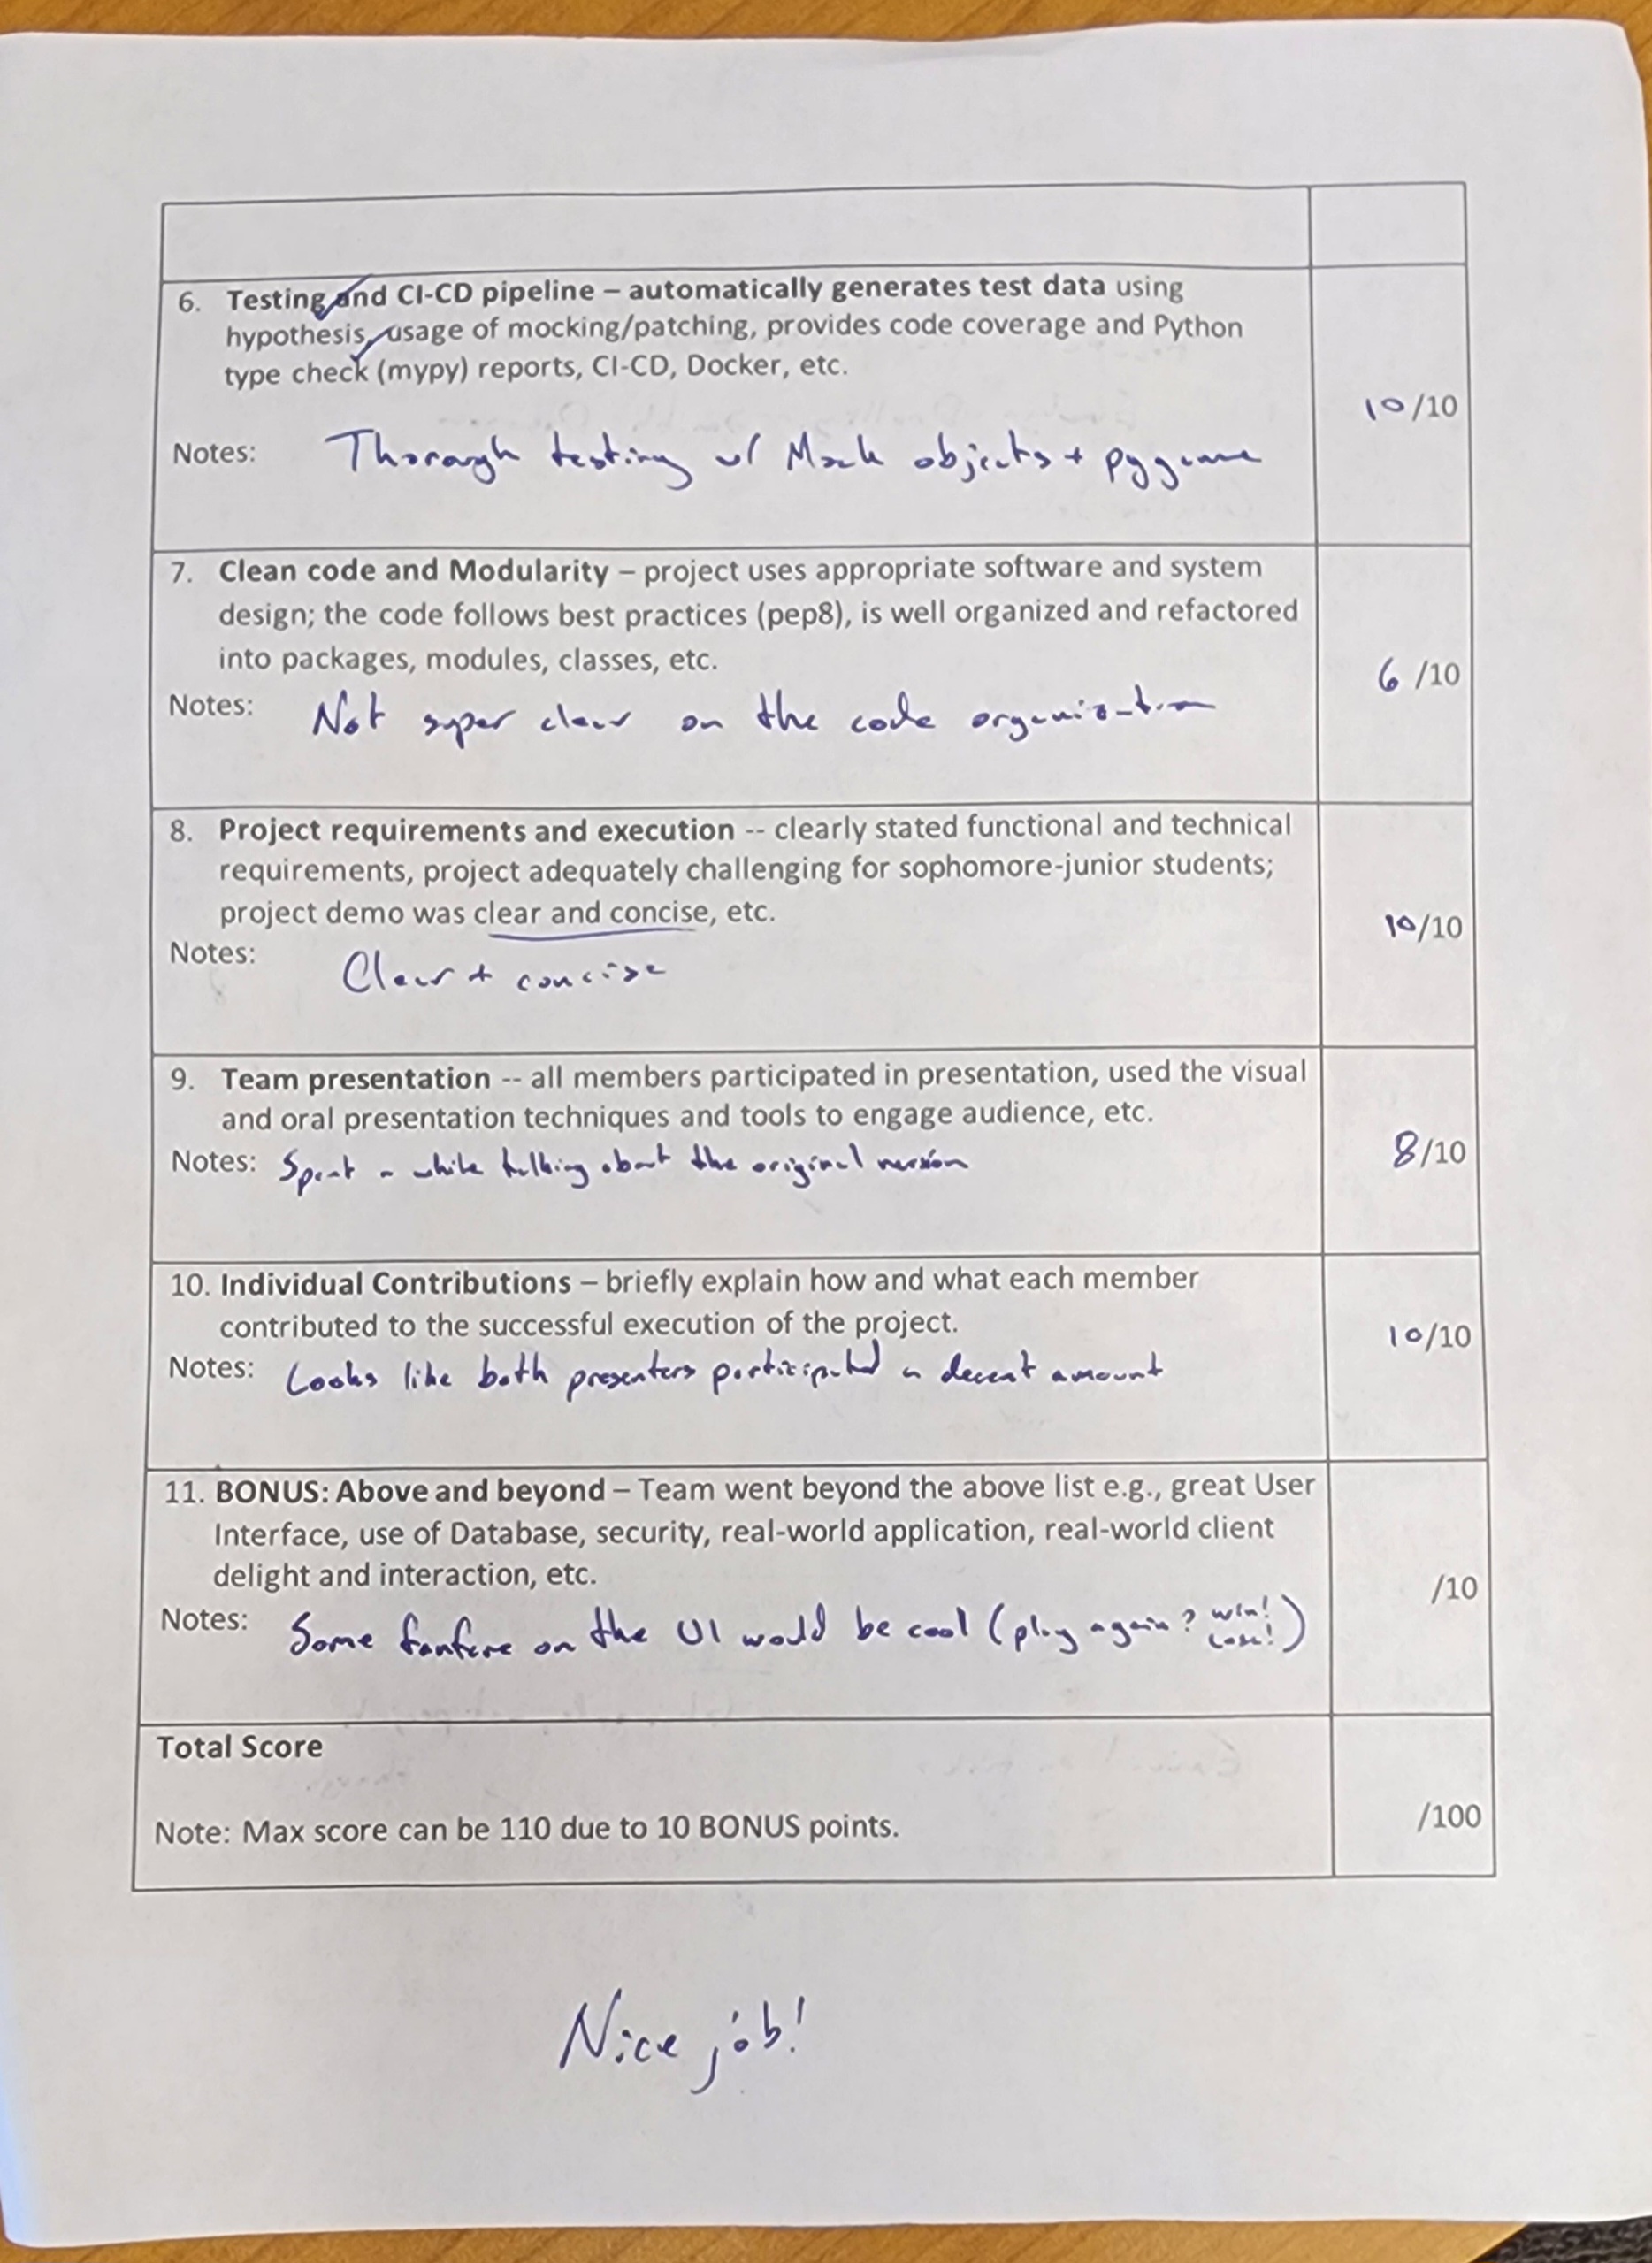 6. Testing and CI-CD pipeline – automatically generates test data using
hypothesis, usage of mocking/patching, provides code coverage and Python
type check (mypy) reports, CI-CD, Docker, etc.
10/10
Notes: Thorough testing w/ Mock objects + pygame
7. Clean code and Modularity – project uses appropriate software and system
design; the code follows best practices (pep8), is well organized and refactored
into packages, modules, classes, etc.
6/10
Notes: Not super clear on the code organization
8. Project requirements and execution -- clearly stated functional and technical
requirements, project adequately challenging for sophomore-junior students;
project demo was clear and concise, etc.
10/10
Notes: Clear + concise
9. Team presentation -- all members participated in presentation, used the visual
and oral presentation techniques and tools to engage audience, etc.
8/10
Notes: Spent a while talking about the original version
10. Individual Contributions – briefly explain how and what each member
contributed to the successful execution of the project.
10/10
Notes: Looks like both presenters participated a decent amount
11. BONUS: Above and beyond – Team went beyond the above list e.g., great User
Interface, use of Database, security, real-world application, real-world client
delight and interaction, etc.
/10
Notes: Some fanfare on the UI would be cool (play again? win! lose!)
Total Score
/100
Note: Max score can be 110 due to 10 BONUS points.
Nice job!